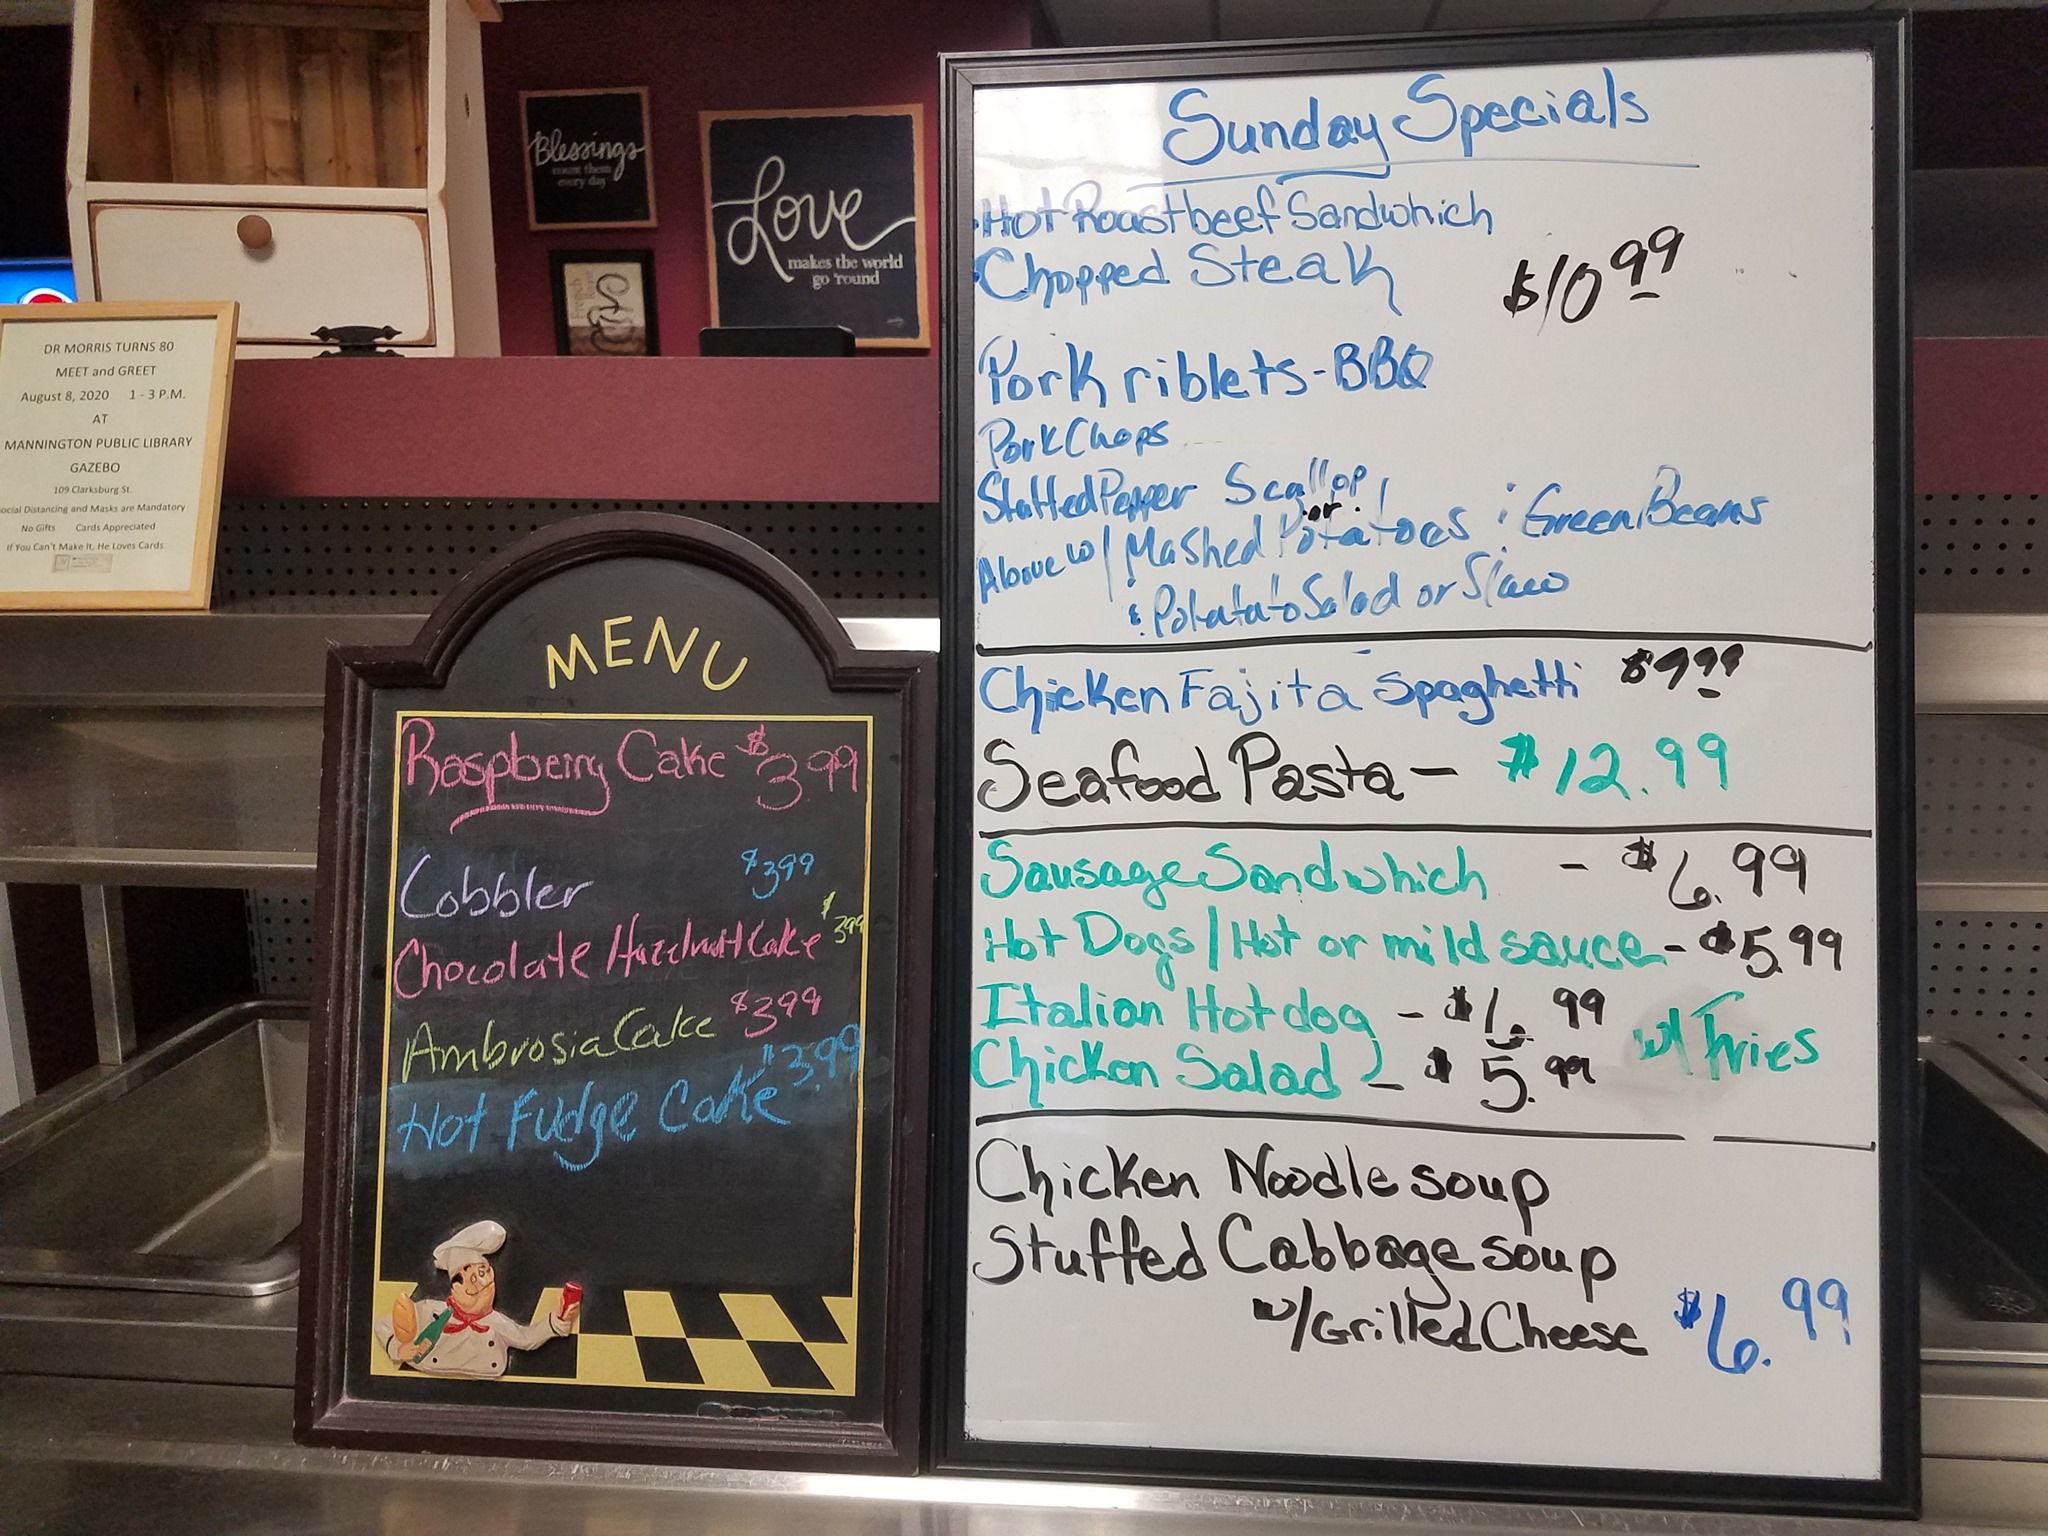 Blessings
count them
every day
Love
makes the world
go 'round
DR MORRIS TURNS 80
MEET and GREET
August 8, 2020 1 - 3 P.M.
AT
MANNINGTON PUBLIC LIBRARY
GAZEBO
109 Clarksburg St.
ocial Distancing and Masks are Mandatory
No Gifts Cards Appreciated
If You Can't Make It, He Loves Cards.
MENU
Raspberry Cake $3.99
Cobbler $3.99
Chocolate Hazelnut Cake $3.99
Ambrosia Cake $3.99
Hot Fudge Cake $3.99
Sunday Specials
Hot Roastbeef Sandwhich
Chopped Steak $10.99
Pork riblets - BBQ
Pork Chops
Stuffed Pepper Scallop
or
Above w/ Mashed Potatoes : Green Beans
: Potatato Salad or Slaw
Chicken Fajita Spaghetti $9.99
Seafood Pasta - $12.99
Sausage Sandwhich - $6.99
Hot Dogs / Hot or mild sauce - $5.99
Italian Hot dog - $6.99
w/ Fries
Chicken Salad - $5.99
Chicken Noodle soup
Stuffed Cabbage soup
w/Grilled Cheese $6.99